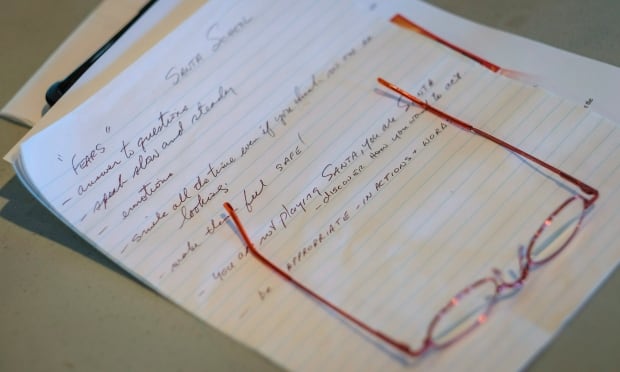 SANTA SCHOOL
"FEARS"
- answer to questions
- speak slow and steady
- emotions
- smile all the time even if you think no one is
looking.
- make them feel SAFE!
- you are not playing SANTA, you are SANTA
- discover how you want to act.
- be APPROPRIATE - IN ACTIONS + WORD